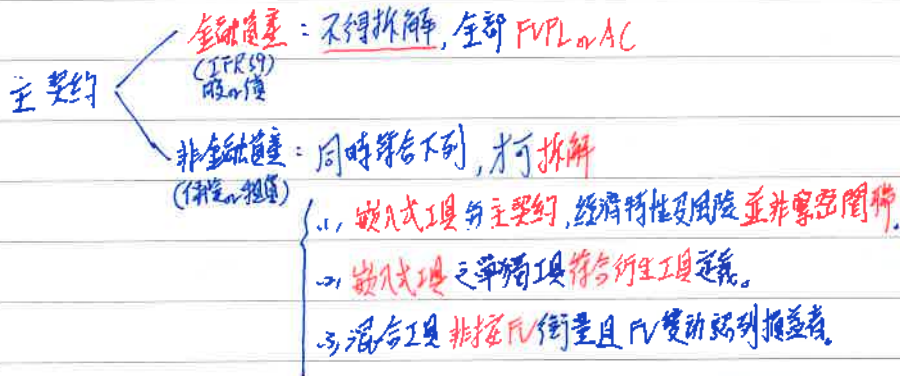 主契約
金融資產：不得拆解，全部 FVPL or AC
(IFRS9)
股or債
非金融資產：同時符合下列，才可拆解
(保險or租賃)
(1) 嵌入式工具與主契約，經濟特性及風險並非緊密關聯。
(2) 嵌入式工具之單獨工具符合衍生工具定義。
(3) 混合工具非按FV衡量且FV變動認列損益者。